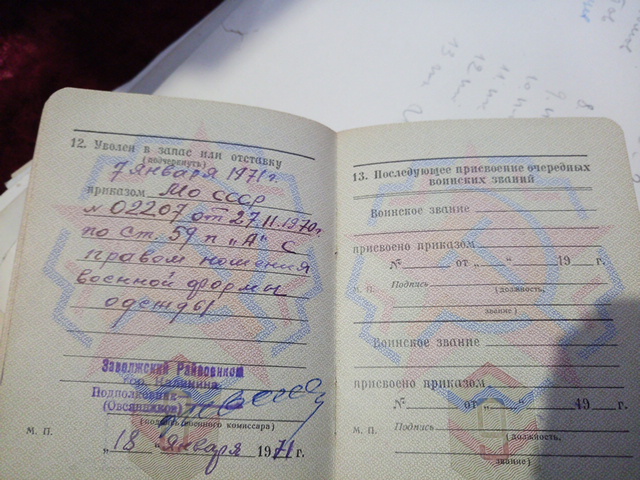 12. Уволен в запас или отставку
(подчеркнуть)
7 января 1971 г.
приказом МО СССР
№ 02207 от 27.11.1970г.
по ст. 59 п „А" с
правом ношения
военной формы
одежды
Заволжский Райвоенком
гор. Калинина
Подполковник
(Овсянников)
(подпись военного комиссара)
М. П.
„18 " января 1971 г.
13. Последующее присвоение очередных
воинских званий
Воинское звание
присвоено приказом
№ от „ " 19 г.
М. П. Подпись
(должность,
звание)
Воинское звание
присвоено приказом
№ от „ " 19 г.
М. П. Подпись
(должность,
звание)